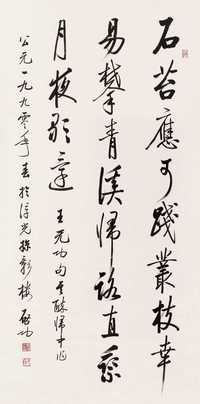 石苔應可踐叢枝幸
易攀青溪歸路直乘
月夜歌還 王无功句 醉歸
公元一九九零年春於浮光掠影樓 啟功